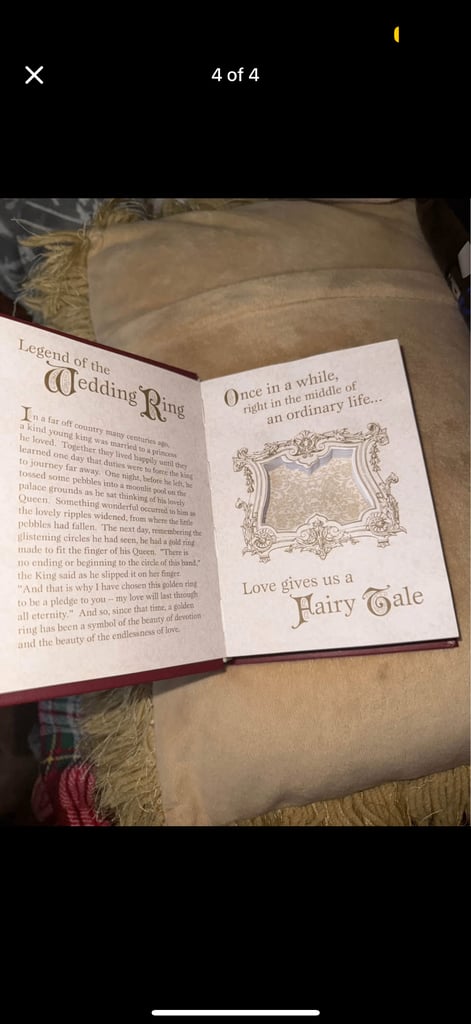 4 of 4
Legend of the
Wedding Ring
In a far off country many centuries ago,
a kind young king was married to a princess
he loved. Together they lived happily until they
learned one day that duties were to force the king
to journey far away. One night, before he left, he
tossed some pebbles into a moonlit pool on the
palace grounds as he sat thinking of his lovely
Queen. Something wonderful occurred to him as
the lovely ripples widened, from where the little
pebbles had fallen. The next day, remembering the
glistening circles he had seen, he had a gold ring
made to fit the finger of his Queen. "There is
no ending or beginning to the circle of this band,"
the King said as he slipped it on her finger.
"And that is why I have chosen this golden ring
to be a pledge to you – my love will last through
all eternity." And so, since that time, a golden
ring has been a symbol of the beauty of devotion
and the beauty of the endlessness of love.
Once in a while,
right in the middle of
an ordinary life...
Love gives us a
Fairy Tale